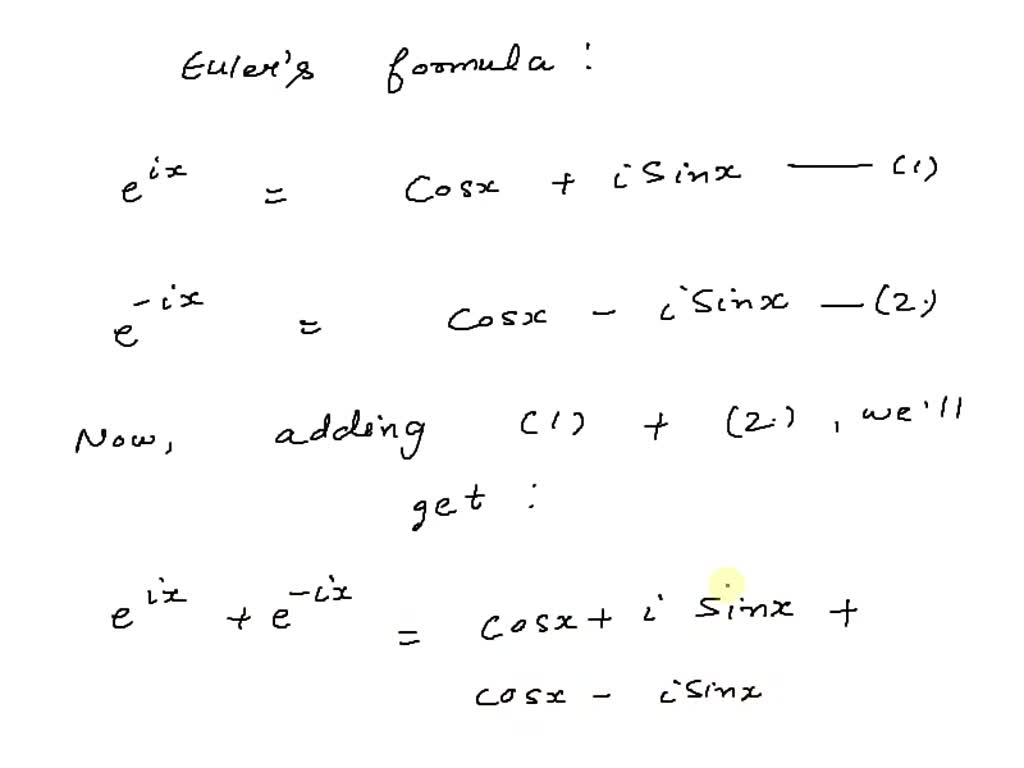 Euler's formula :
e^ix = Cosx + i Sinx —— (1)
e^-ix = Cosx - i Sinx — (2.)
Now, adding (1) + (2.), we'll
get :
e^ix + e^-ix = Cosx + i Sinx +
Cosx - i Sinx